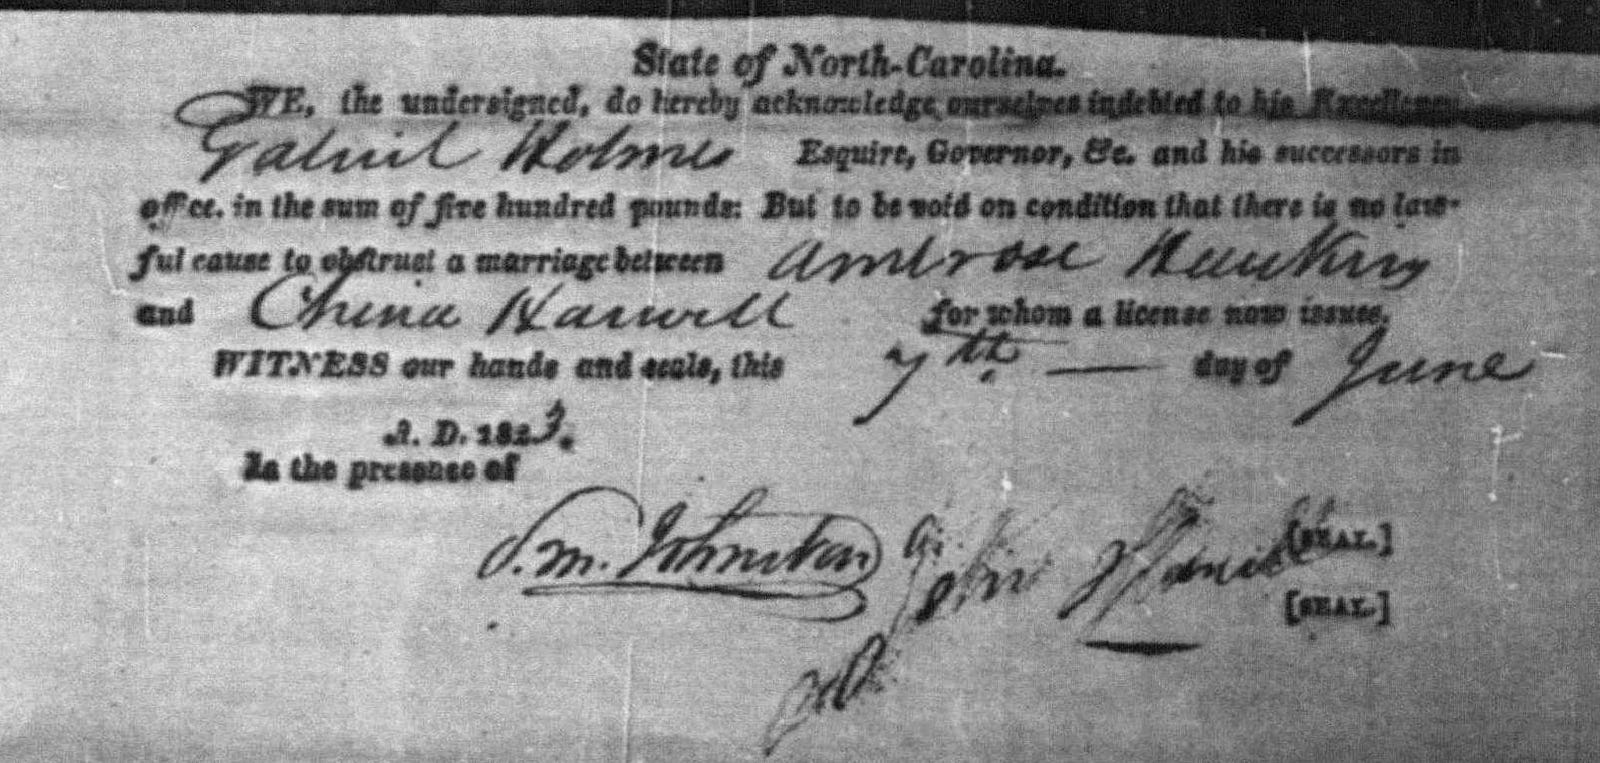 State of North-Carolina.
WE, the undersigned, do hereby acknowledge ourselves indebted to his Excellency
Gabriel Holmes Esquire, Governor, &c. and his successors in
office. in the sum of five hundred pounds: But to be void on condition that there is no law-
ful cause to obstruct a marriage between Ambrose Hawkins
and China Harwell for whom a license now issues.
WITNESS our hands and seals, this 7th — day of June
A. D. 1823.
In the presence of
S. M. Johnston John [SEAL.]
[SEAL.]